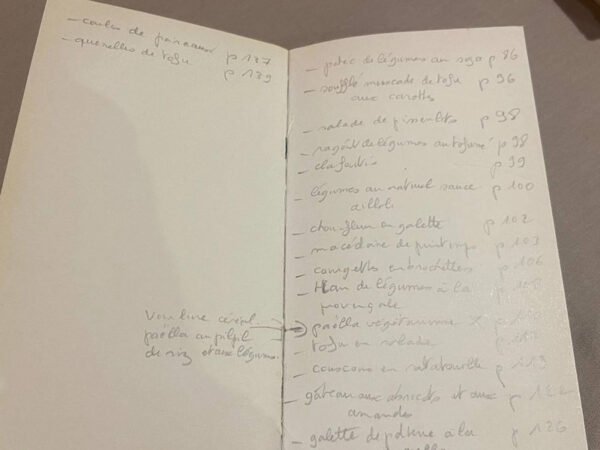 - coulis de poireaux p 127
- quenelles de tofu
p 139
Voir livre céréal
paëlla au pilpil
de riz et aux légumes
- potée de légumes au soja p 86
- soufflé muscade de tofu p 96
aux carottes
- salade de pissenlits p 98
- ragoût de légumes au tofu fumé p 98
- clafoutis p 99
- légumes au naturel sauce p 100
aïlloli
- chou-fleur en galette p 102
- macédoine de printemps p 103
- courgettes en brochettes p 106
- flan de légumes à la p 108
provençale
- paëlla végétarienne x p 110
- tofu en salade p 112
- couscous en ratatouille p 113
- gâteau aux abricots et aux p 122
amandes
- galette de pdterre à la p 126